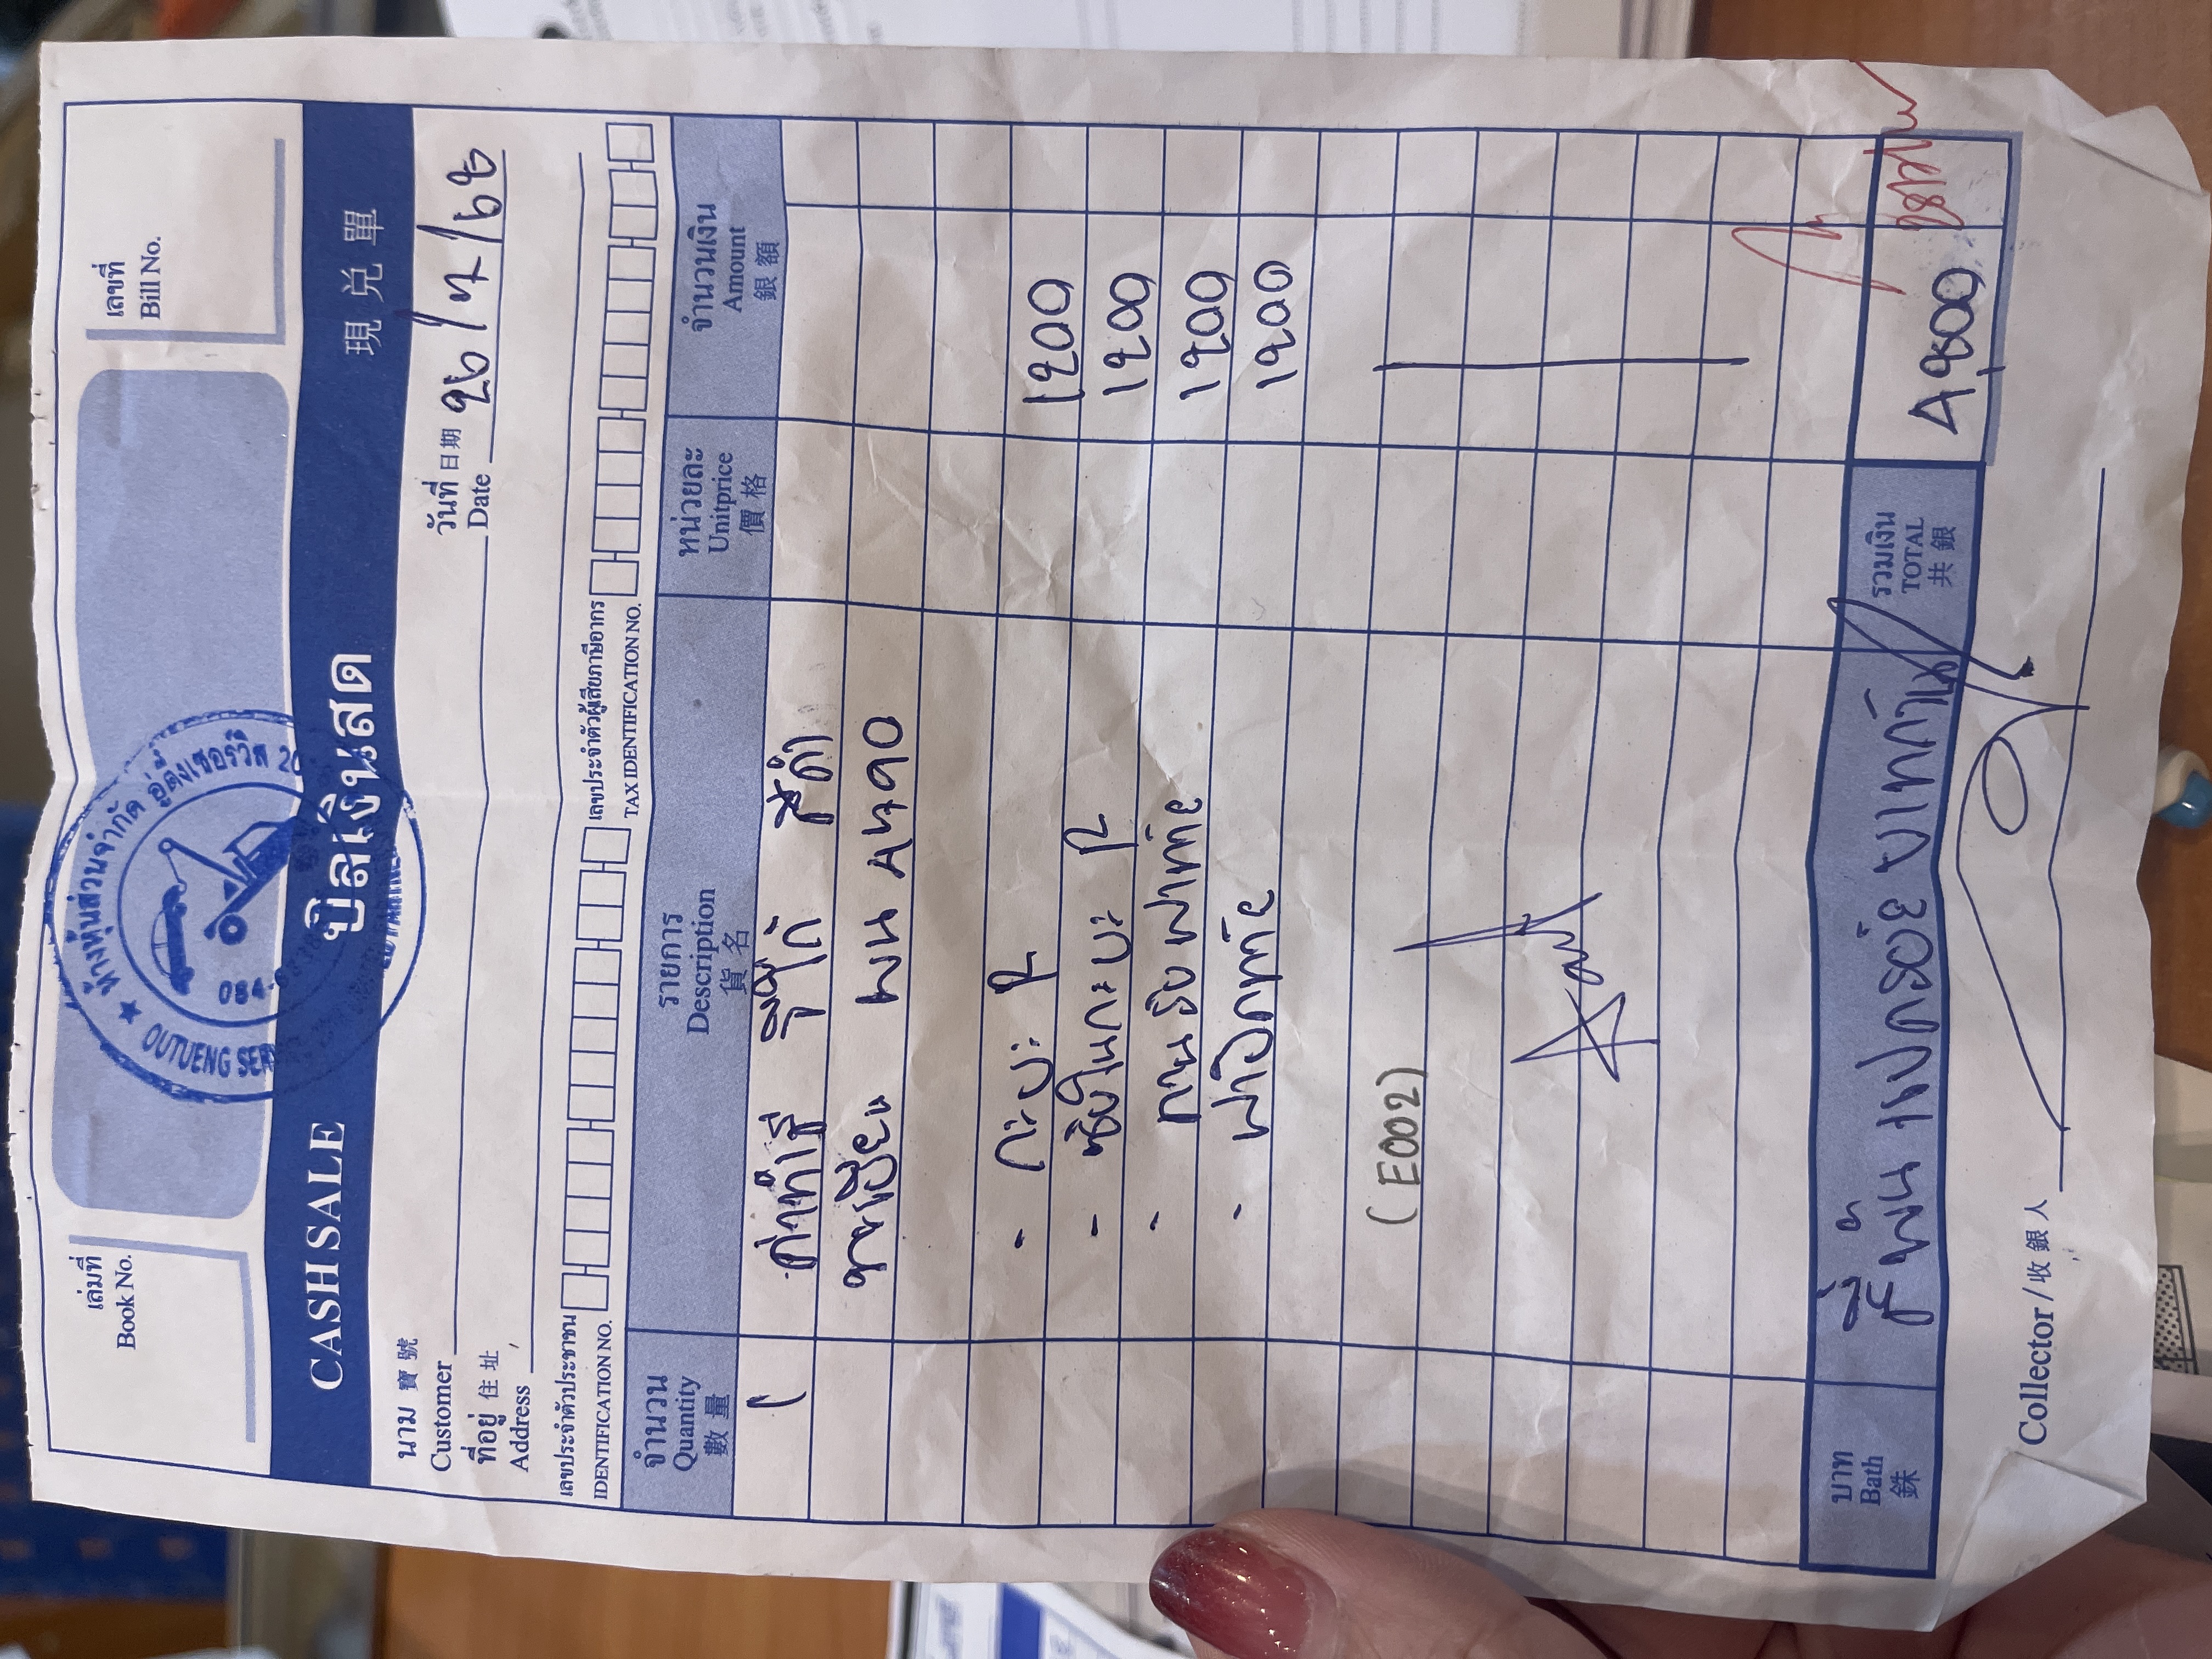 เล่มที่
Book No.
เลขที่
Bill No.
ห้างหุ้นส่วนจำกัด อู่ตึงเซอร์วิส
084-
OUTUENG
CASH SALE บิลเงินสด 現兌單
นาม 寶號
Customer
วันที่ 日期
Date 26/7/68
ที่อยู่ 住址
Address
เลขประจำตัวประชาชน
IDENTIFICATION NO.
เลขประจำตัวผู้เสียภาษีอากร
TAX IDENTIFICATION NO.
จำนวน รายการ หน่วยละ จำนวนเงิน
Quantity Description Unitprice Amount
數量 貨名 價格 銀額
1 ค่าทำสี สีดำ
ทะเบียน 4770
- กะบะ R 1200
- R 1200
- 1200
- ฝาปิดท้าย 1200
(E002)
บาท
Bath
銖
สี่พันแปดร้อยบาทถ้วน
รวมเงิน
TOTAL
共銀
4800
Collector / 收銀人